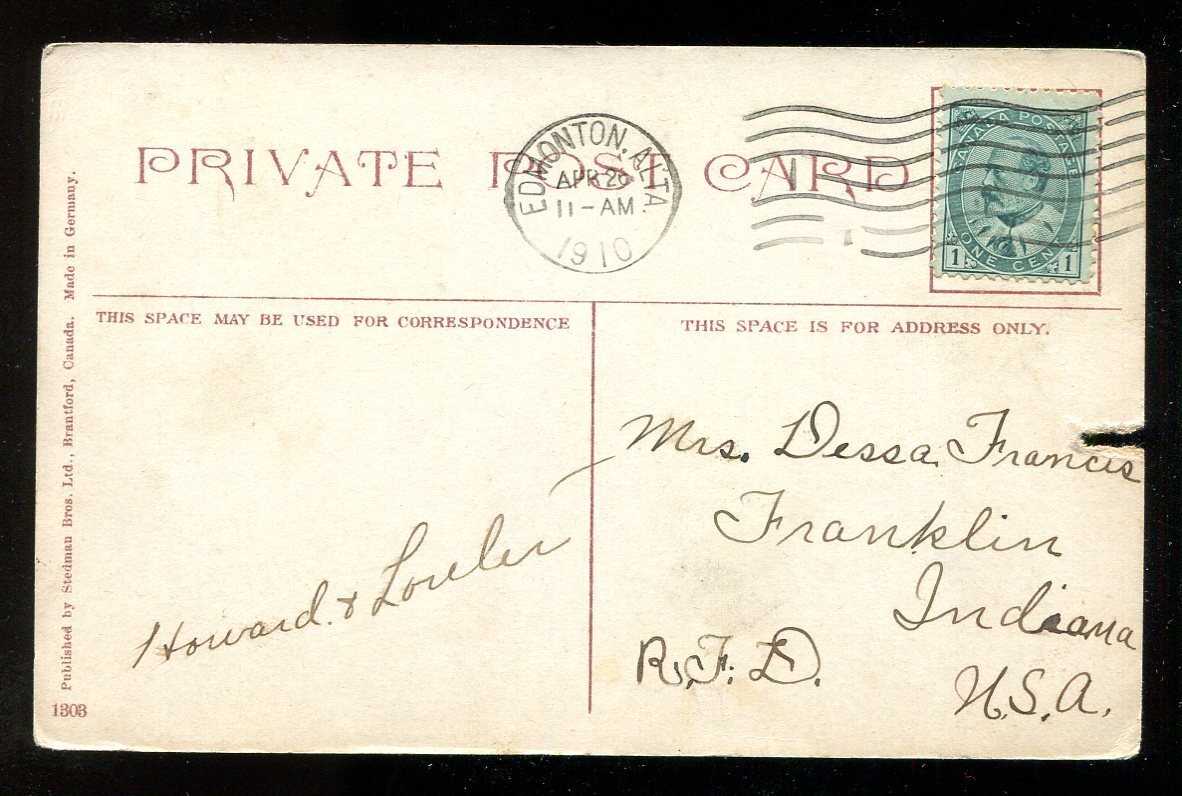 PRIVATE POST CARD
EDMONTON, ALTA.
APR 26
11-AM
1910
CANADA POSTAGE
1 ONE CENT 1
THIS SPACE MAY BE USED FOR CORRESPONDENCE
THIS SPACE IS FOR ADDRESS ONLY.
Howard &
Mrs. Dessa Francis
Franklin
Indiana
R.F.D.
U.S.A.
Published by Stedman Bros. Ltd., Brantford, Canada. Made in Germany.
1303